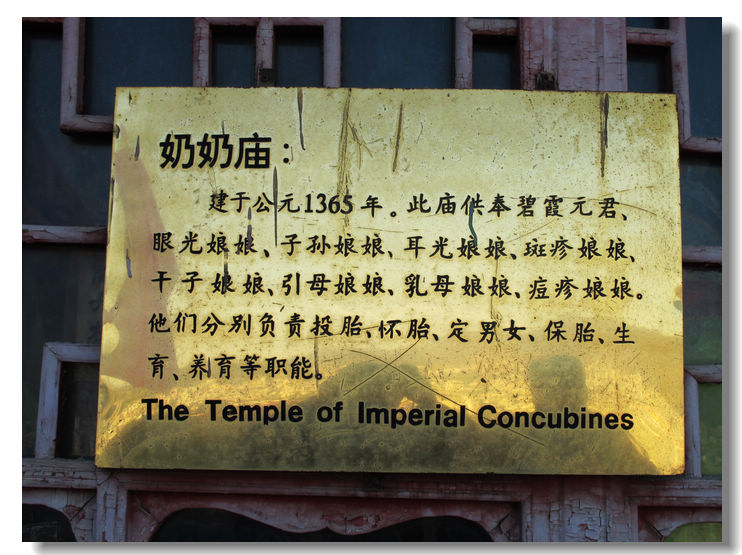 奶奶庙：
建于公元1365年。此庙供奉碧霞元君、
眼光娘娘、子孙娘娘、耳光娘娘、斑疹娘娘、
干子娘娘、引母娘娘、乳母娘娘、痘疹娘娘。
他们分别负责投胎、怀胎、定男女、保胎、生
育、养育等职能。
The Temple of Imperial Concubines